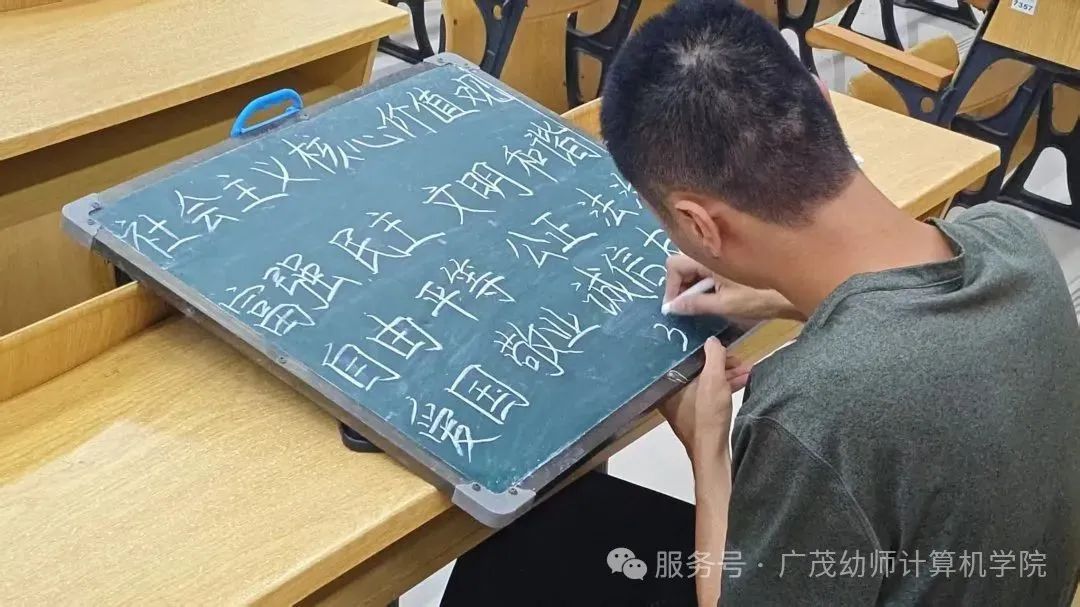 社会主义核心价值观
富强 民主 文明 和谐
自由 平等 公正 法
爱国 敬业 诚信
3
7357
服务号 · 广茂幼师计算机学院